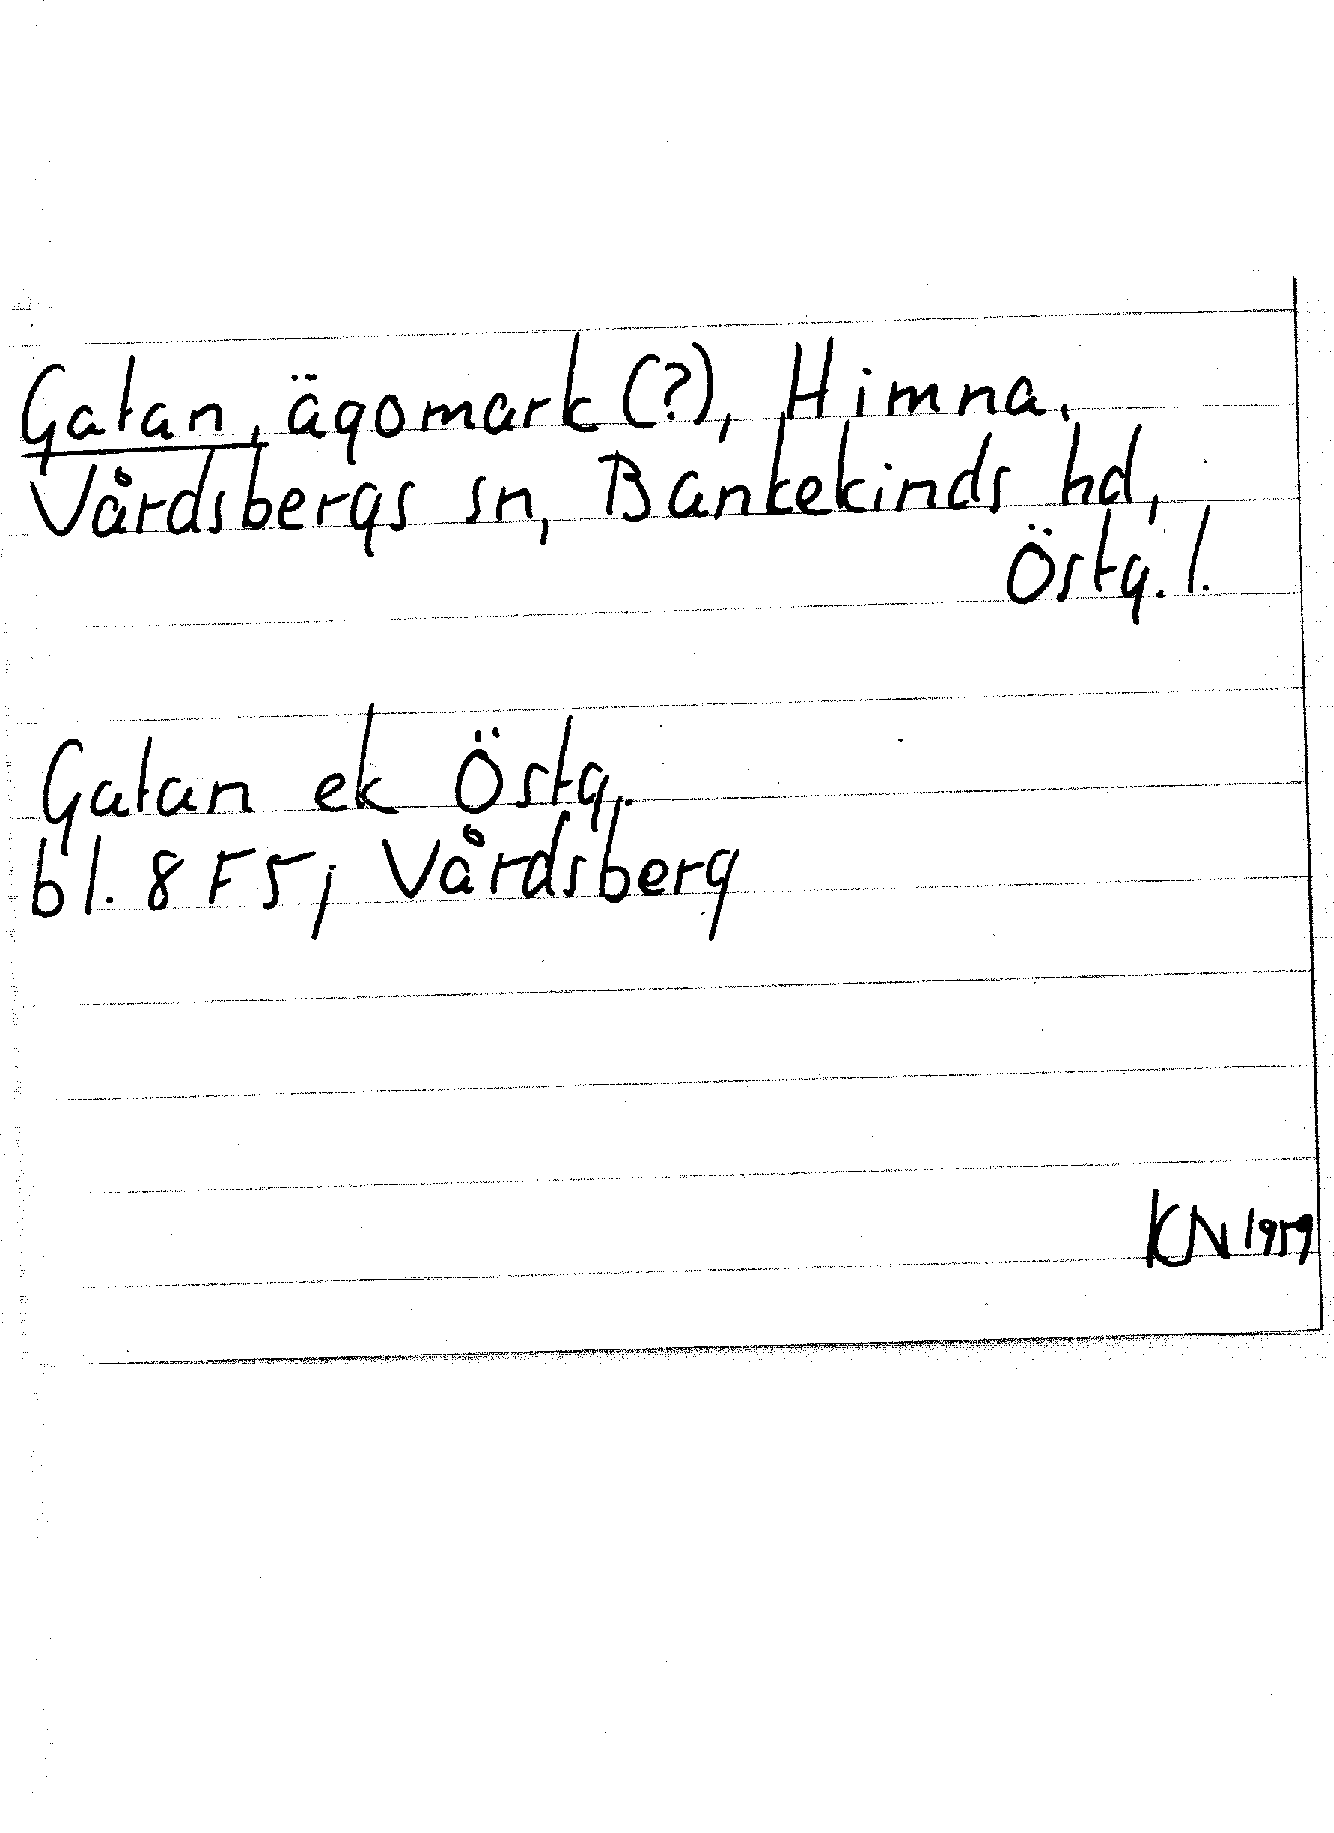 Gatan, ägomark (?), Himna,
Vårdsbergs sn, Bankekinds hd,
Östg. l.
Gatan ek Östg.
bl. 8 F5; Vårdsberg
KN 1959